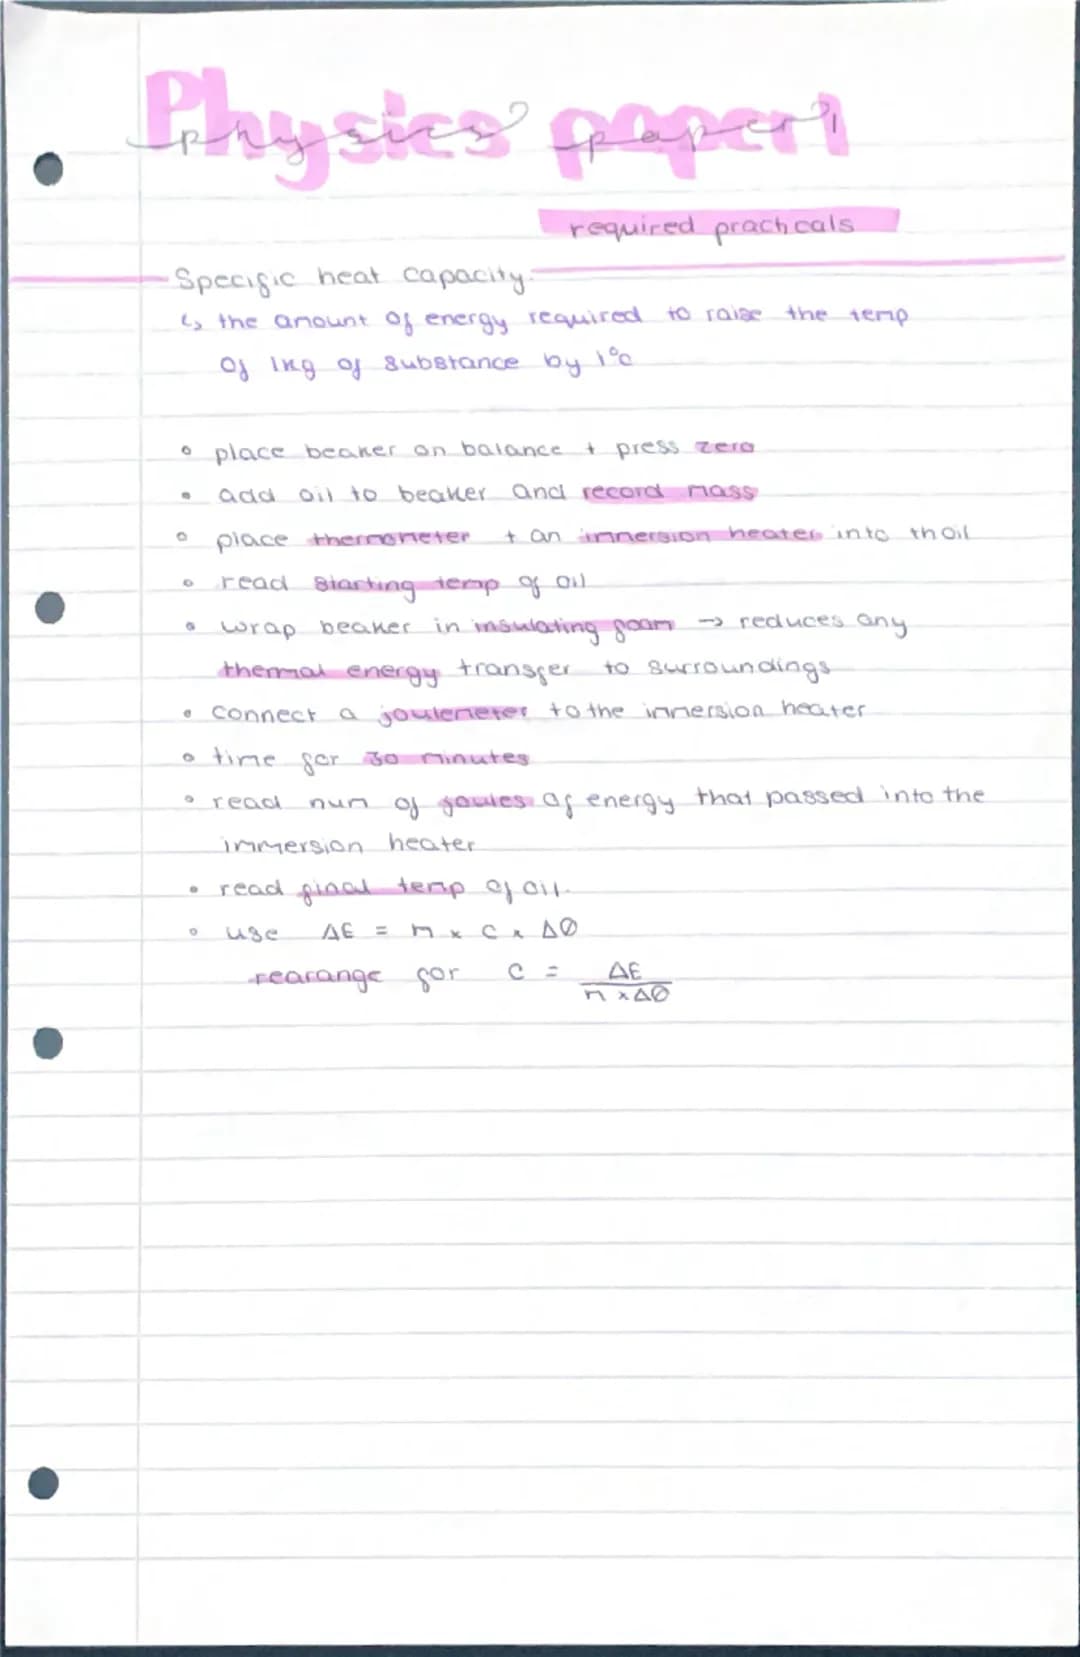 Physics paper 1
required practicals
Specific heat capacity:
↳ the amount of energy required to raise the temp
of 1kg of substance by 1°c
• place beaker on balance + press zero
• add oil to beaker and record mass
• place thermometer + an immersion heater into th oil
• read starting temp of oil
• wrap beaker in insulating foam → reduces any
thermal energy transfer to surroundings
• connect a joulemeter to the immersion heater
• time for 30 minutes
• read num of joules of energy that passed into the
immersion heater
• read final temp of oil.
• use ΔE = m x c x Δθ
rearange for c = ΔE
m x Δθ